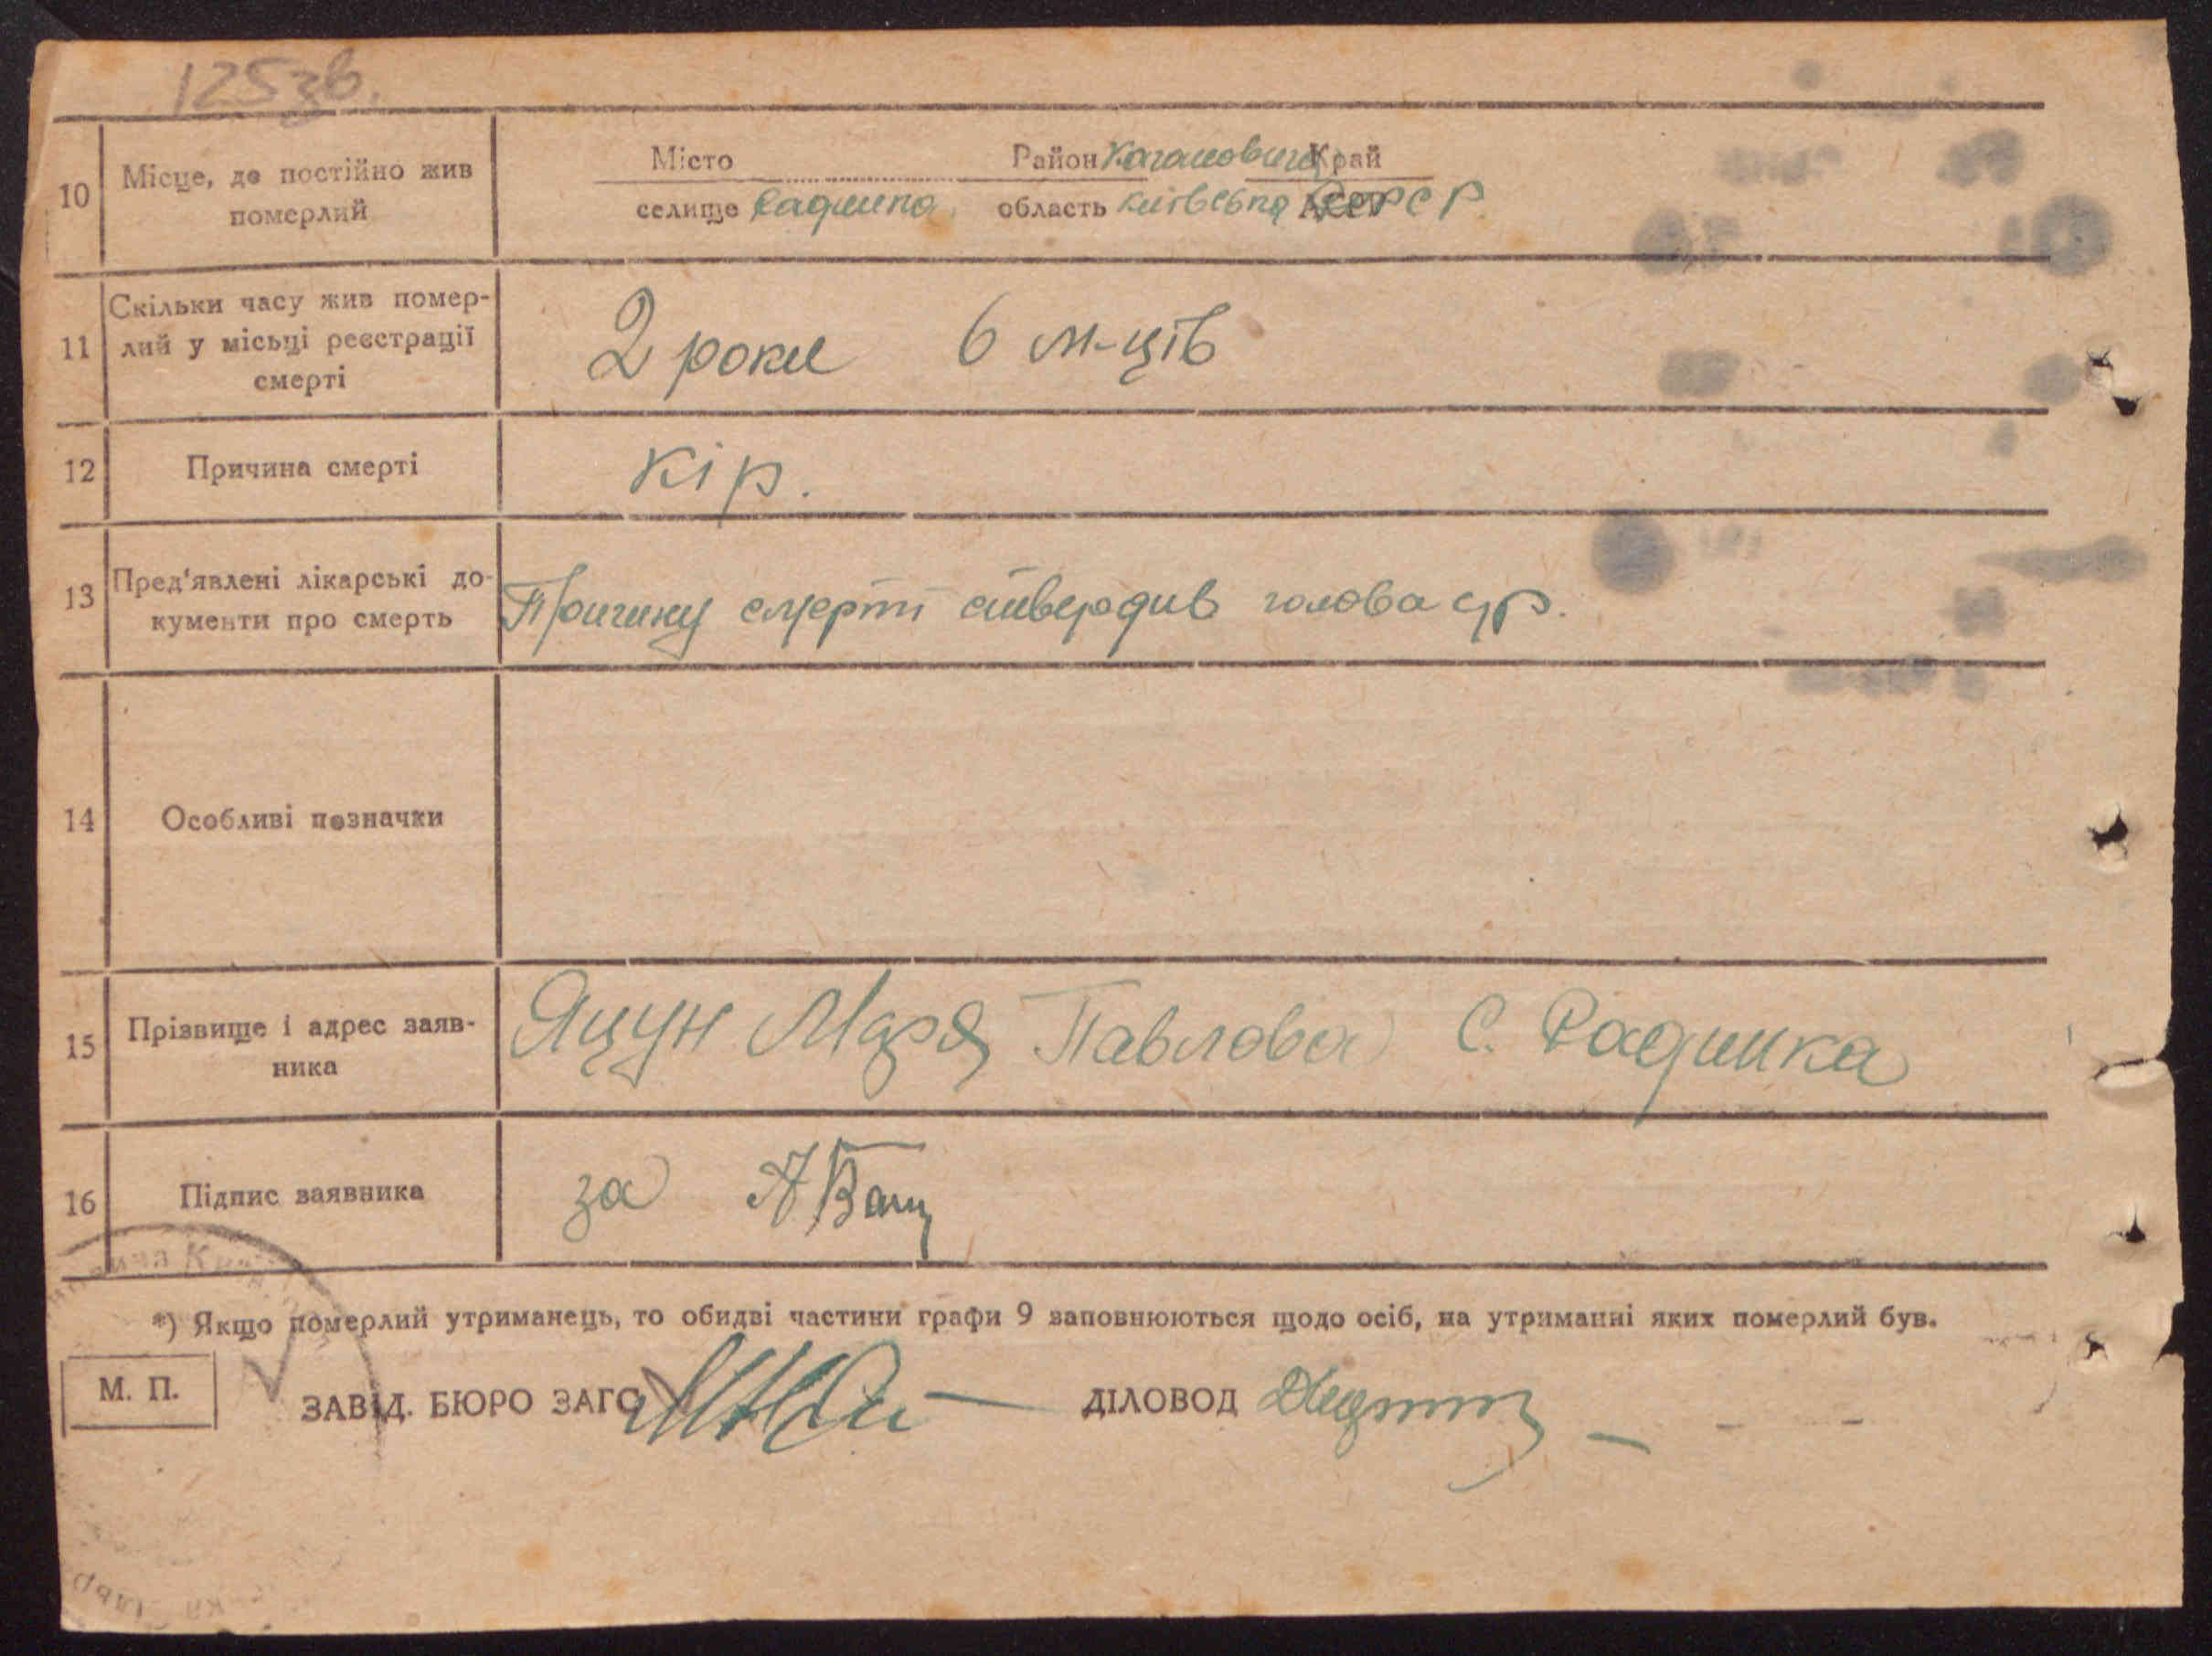 125зв.
10 Місце, де постійно жив померлий
Місто Район Каганович Край
селище Радинка область Київська АСРР УРСР
11 Скільки часу жив помер-
лий у місьці реєстрації
смерті
2 роки 6 м-ців
12 Причина смерті кір.
13 Пред'явлені лікарські до-
кументи про смерть
Причину смерті ствердив голова с/р.
14 Особливі позначки
15 Прізвище і адрес заяв-
ника
Яцун Маря Павлова С. Радинка
16 Підпис заявника за
*) Якщо померлий утриманець, то обидві частини графи 9 заповнюються щодо осіб, на утриманні яких померлий був.
М. П.
ЗАВІД. БЮРО ЗАГС ДІЛОВОД